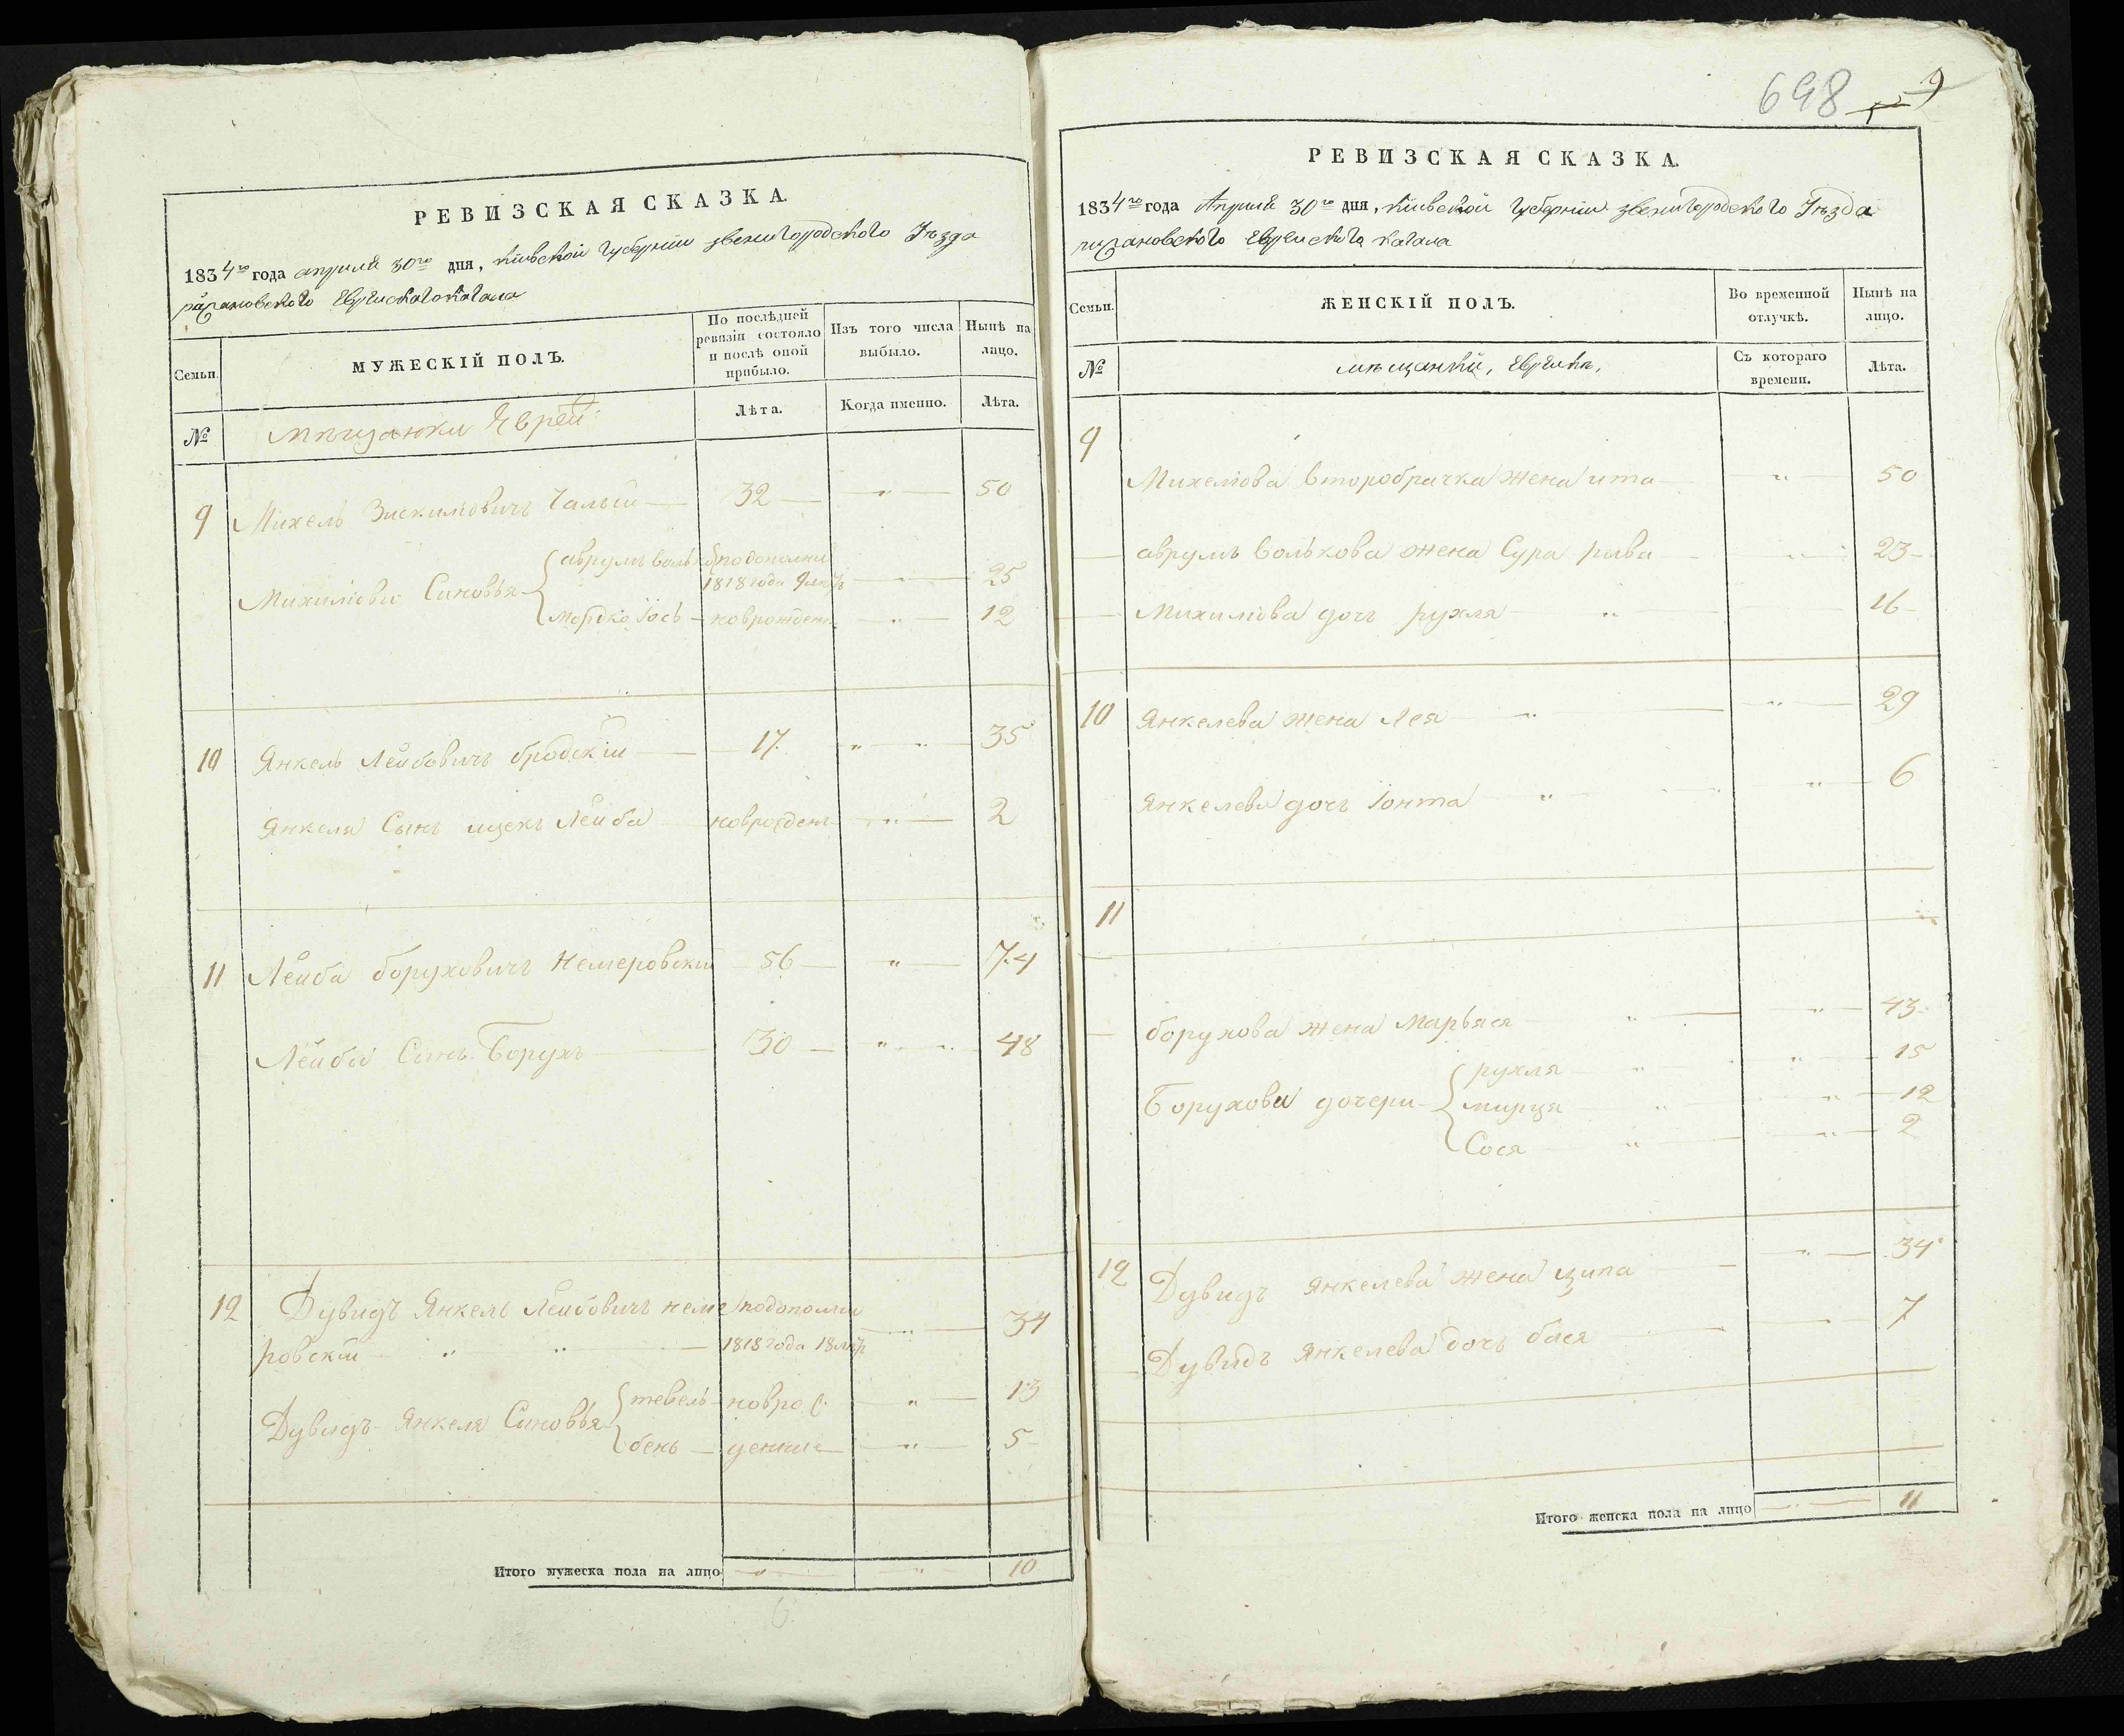 РЕВИЗСКАЯ СКАЗКА.
1834го года апреля 30го дня, Кіевской Губерніи Звенигородского Уѣзда
Еврейского Кагала
Семьи.
МУЖЕСКІЙ ПОЛЪ.
По послѣдней ревизіи состояло и послѣ оной прибыло.
Изъ того числа выбыло.
Нынѣ на лицо.
№
мѣщанки Еврей
Лѣта.
Когда именно.
Лѣта.
9 Михель Чалый 32 " 50
Михилiови Синовья { аврумъ Волько подополни 1818 года 9 мѣс " 25
мордко Іось новрожден " 12
10 Янкель Лейбовичъ бродскій 17 " " 35
Янкеля Сынъ ицекъ Лейба новрожден " 2
11 Лейба боруховичъ Немеровскій 56 " 74
Лейби Синъ Борухъ 30 " " 48
12 Дувидъ Янкель Лейбовичъ неме подополни
ровскій " " 1818 года 18 " 34
Дувидъ Янкеля Синовья { тевель новрож " 13
бень денние " 5
Итого мужеска пола на лицо " " 10
698 9
РЕВИЗСКАЯ СКАЗКА.
1834го года Апреля 30го дня, Кіевской Губерніи Звенигородского Уѣзда
Еврейского Кагала
Семьи.
ЖЕНСКІЙ ПОЛЪ.
Во временной отлучкѣ.
Нынѣ на лицо.
№
мѣщанки, Еврейки,
Съ котораго времени.
Лѣта.
9
Михелiова второбрачка жена ита " 50
аврумъ Волькова жена Сура рива " 23
Михилiова дочь рухля " 16
10 Янкелева жена Лея " " 29
Янкелева дочь Іонта " " 6
11
борухова жена Марьяся " " 43
Борухови дочери { рухля " " 15
мирця " " 12
Сося " " 2
12 Дувидъ Янкелева жена ципа " 34
Дувидъ Янкелева дочь бася 7
Итого женска пола на лицо " 11